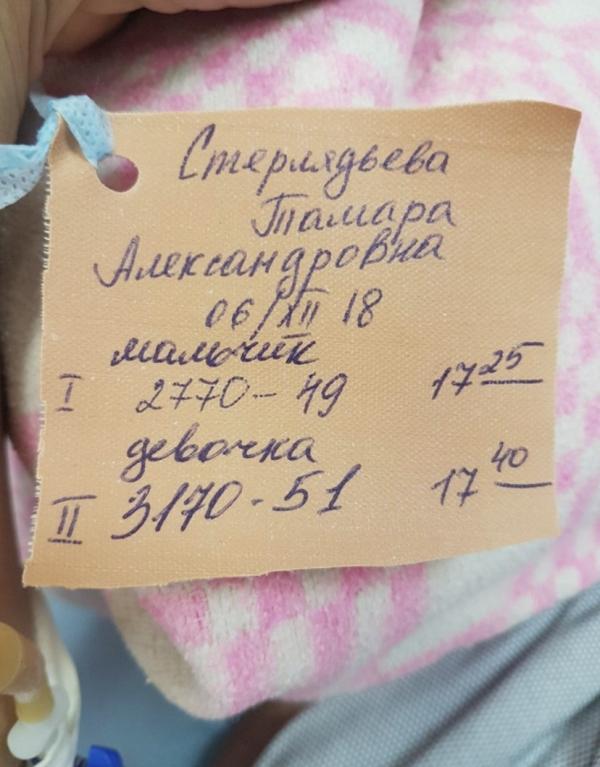 Стерлядьева
Тамара
Александровна
06/XII 18
мальчик
I 2770-49 17 25
девочка
II 3170-51 17 40